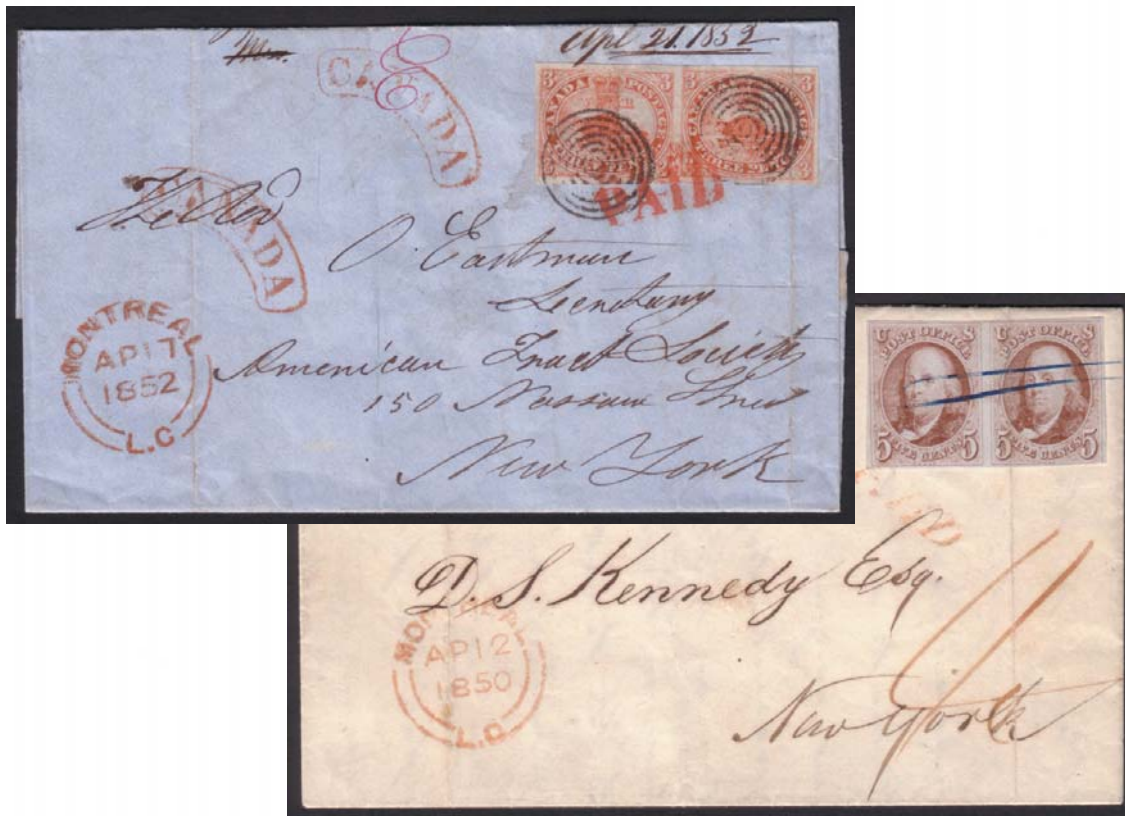 Apl 21. 1852
CANADA
3 3 3 3
CANADA POSTAGE CANADA POSTAGE
THREE PENCE
3 3
PAID
CANADA
O. Eastman
Secretary
American Tract Society
150 Nassau Street
New York
MONTREAL
AP 17
1852
L.C
U S U S
POST OFFICE POST OFFICE
5 5 5 5
FIVE CENTS FIVE CENTS
PAID
D. S. Kennedy Esq.
New York
MONTREAL
AP 12
1850
L.C